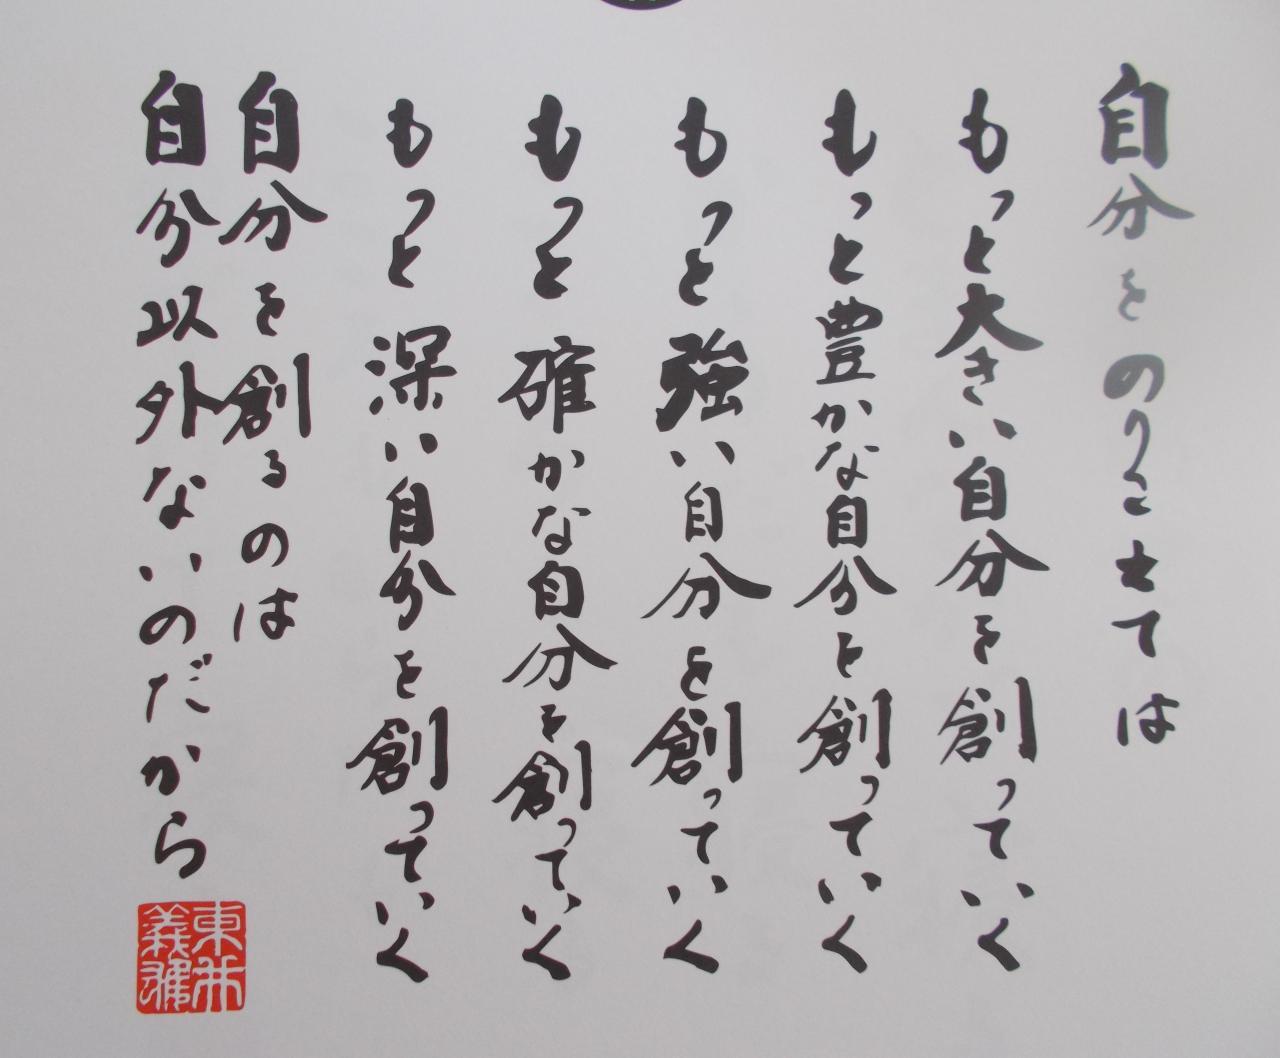 自分をのりこえては
もっと大きい自分を創っていく
もっと豊かな自分を創っていく
もっと強い自分を創っていく
もっと確かな自分を創っていく
もっと深い自分を創っていく
自分を創るのは
自分以外ないのだから
東井
義雄